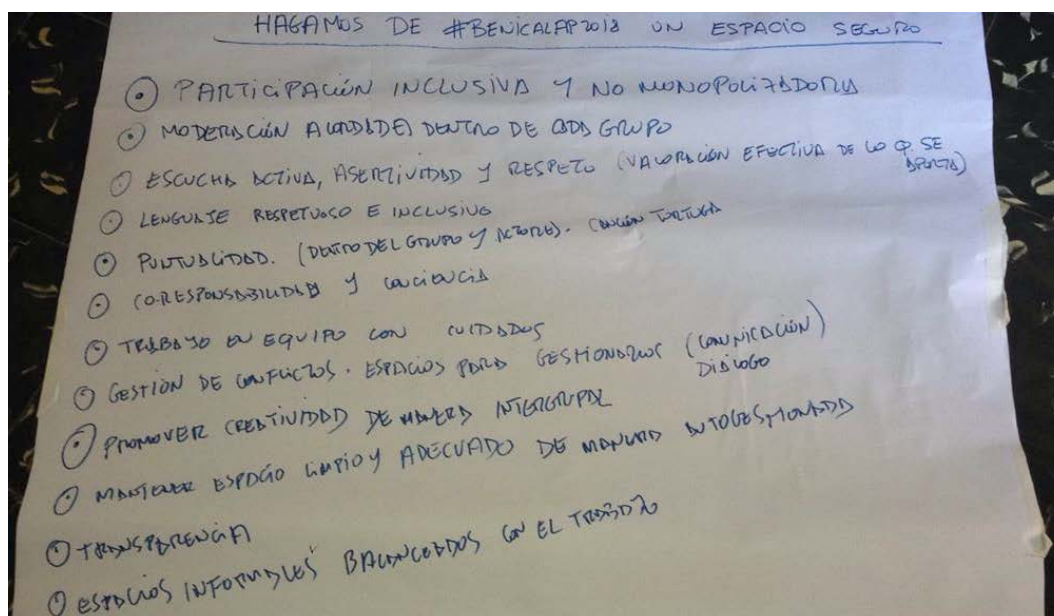 HAGAMOS DE #BENICALAP2018 UN ESPACIO SEGURO
PARTICIPACIÓN INCLUSIVA Y NO MONOPOLIZADORA
MODERACIÓN ACORDADA DENTRO DE CADA GRUPO
ESCUCHA ACTIVA, ASERTIVIDAD Y RESPETO (VALORACIÓN EFECTIVA DE LO Q. SE
APORTA)
LENGUAJE RESPETUOSO E INCLUSIVO
PUNTUALIDAD. (DENTRO DEL GRUPO Y ACTORES). CANCIÓN TORTUGA
CO-RESPONSABILIDAD Y CONCIENCIA
TRABAJO EN EQUIPO CON CUIDADOS
GESTIÓN DE CONFLICTOS. ESPACIOS PARA GESTIONARLOS (COMUNICACIÓN)
DIÁLOGO
PROMOVER CREATIVIDAD DE MANERA INTERGRUPAL
MANTENER ESPACIO LIMPIO Y ADECUADO DE MANERA AUTOGESTIONADA
TRANSPARENCIA
ESPACIOS INFORMALES BALANCEADOS CON EL TRABAJO